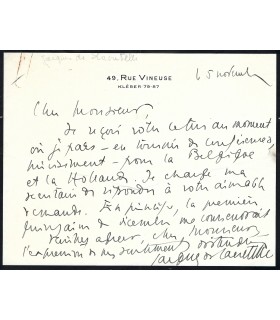 Jacques de Lacretelle
49, RUE VINEUSE
KLÉBER 79-67
15 novembre
Cher Monsieur,
Je reçois votre lettre au moment
où je pars – en tournée de conférences,
précisément – pour la Belgique
et la Hollande. Je charge ma
secrétaire de répondre à votre aimable
demande. En principe, la première
quinzaine de décembre me conviendrait
Veuillez agréer, cher Monsieur,
l'expression de mes sentiments distingués
Jacques de Lacretelle